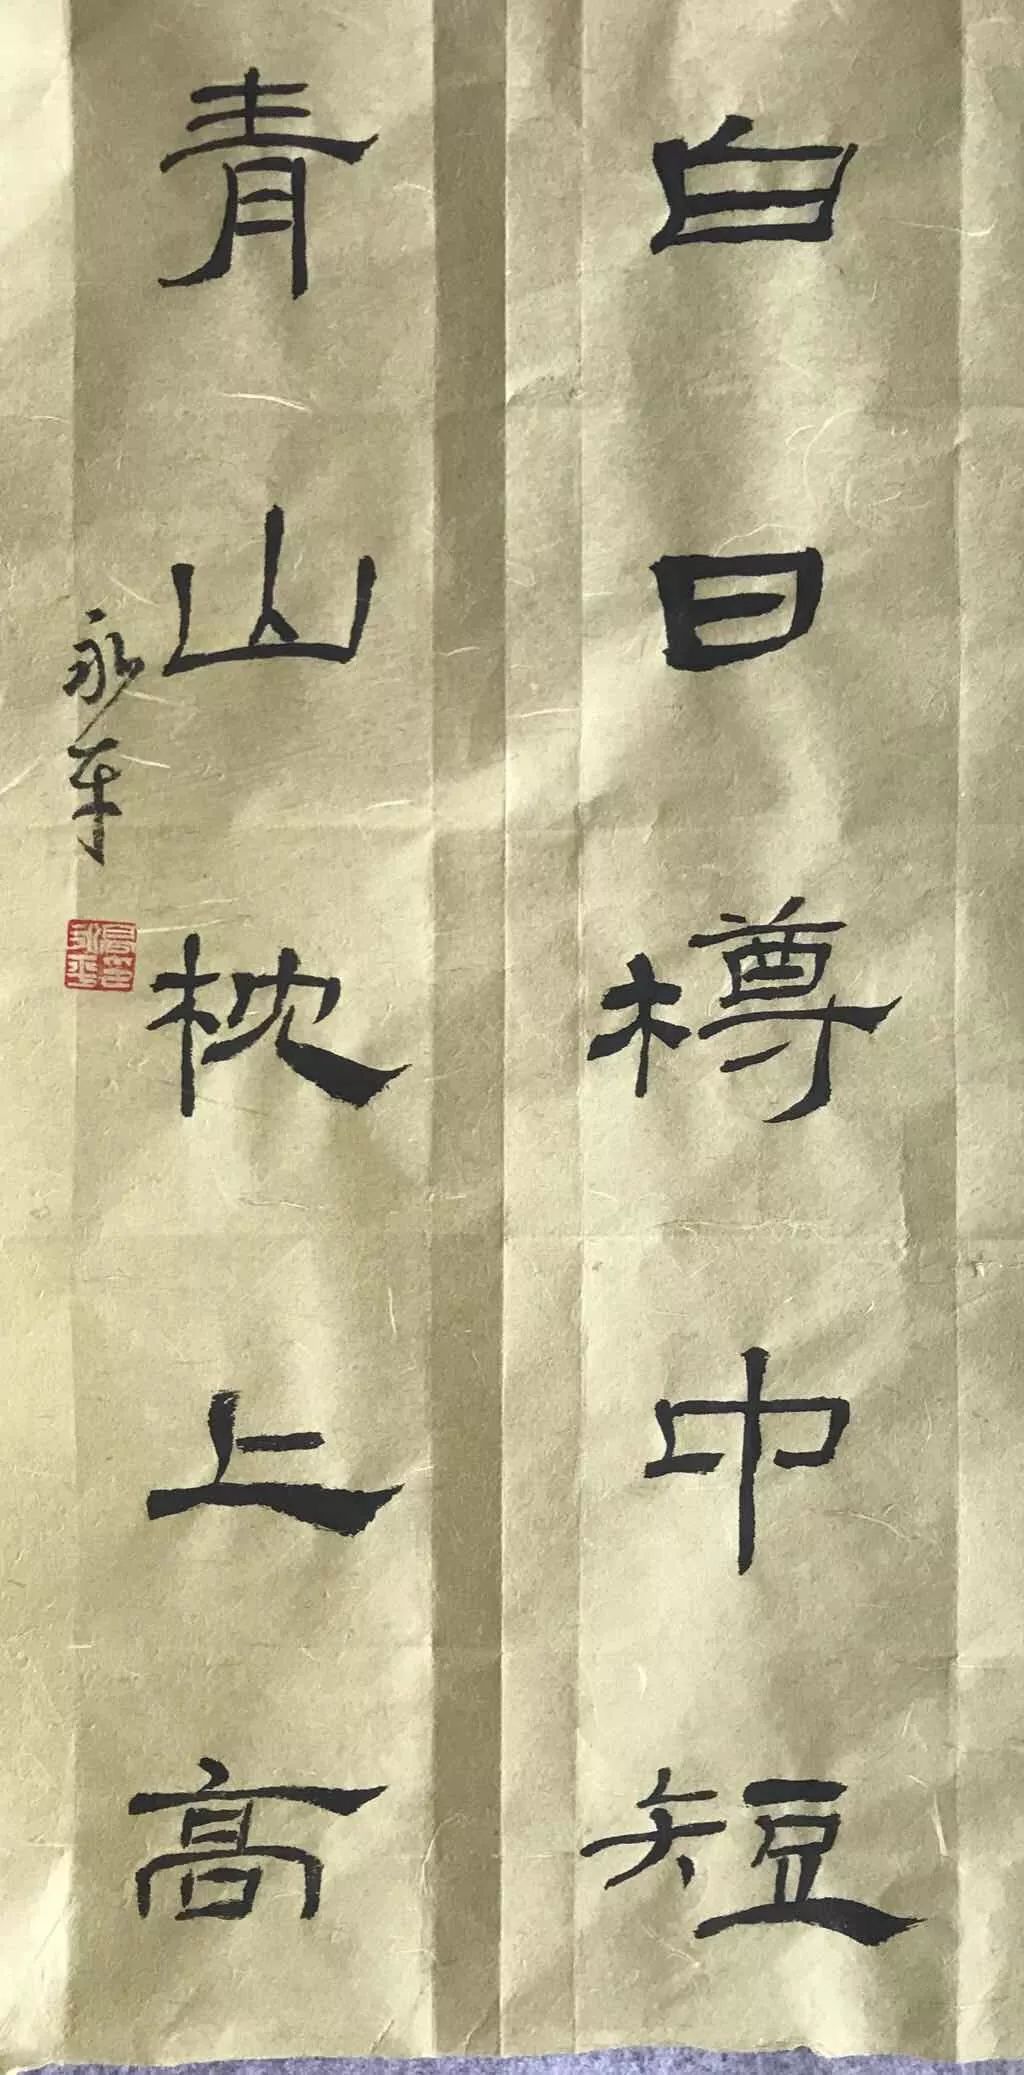 白日樽中短
青山枕上高
永平